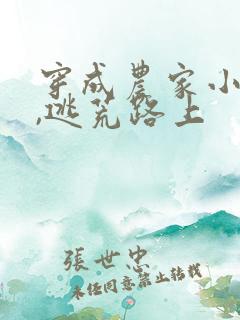 穿成農家小
,逃荒路上
張世忠
未经同意禁止转载